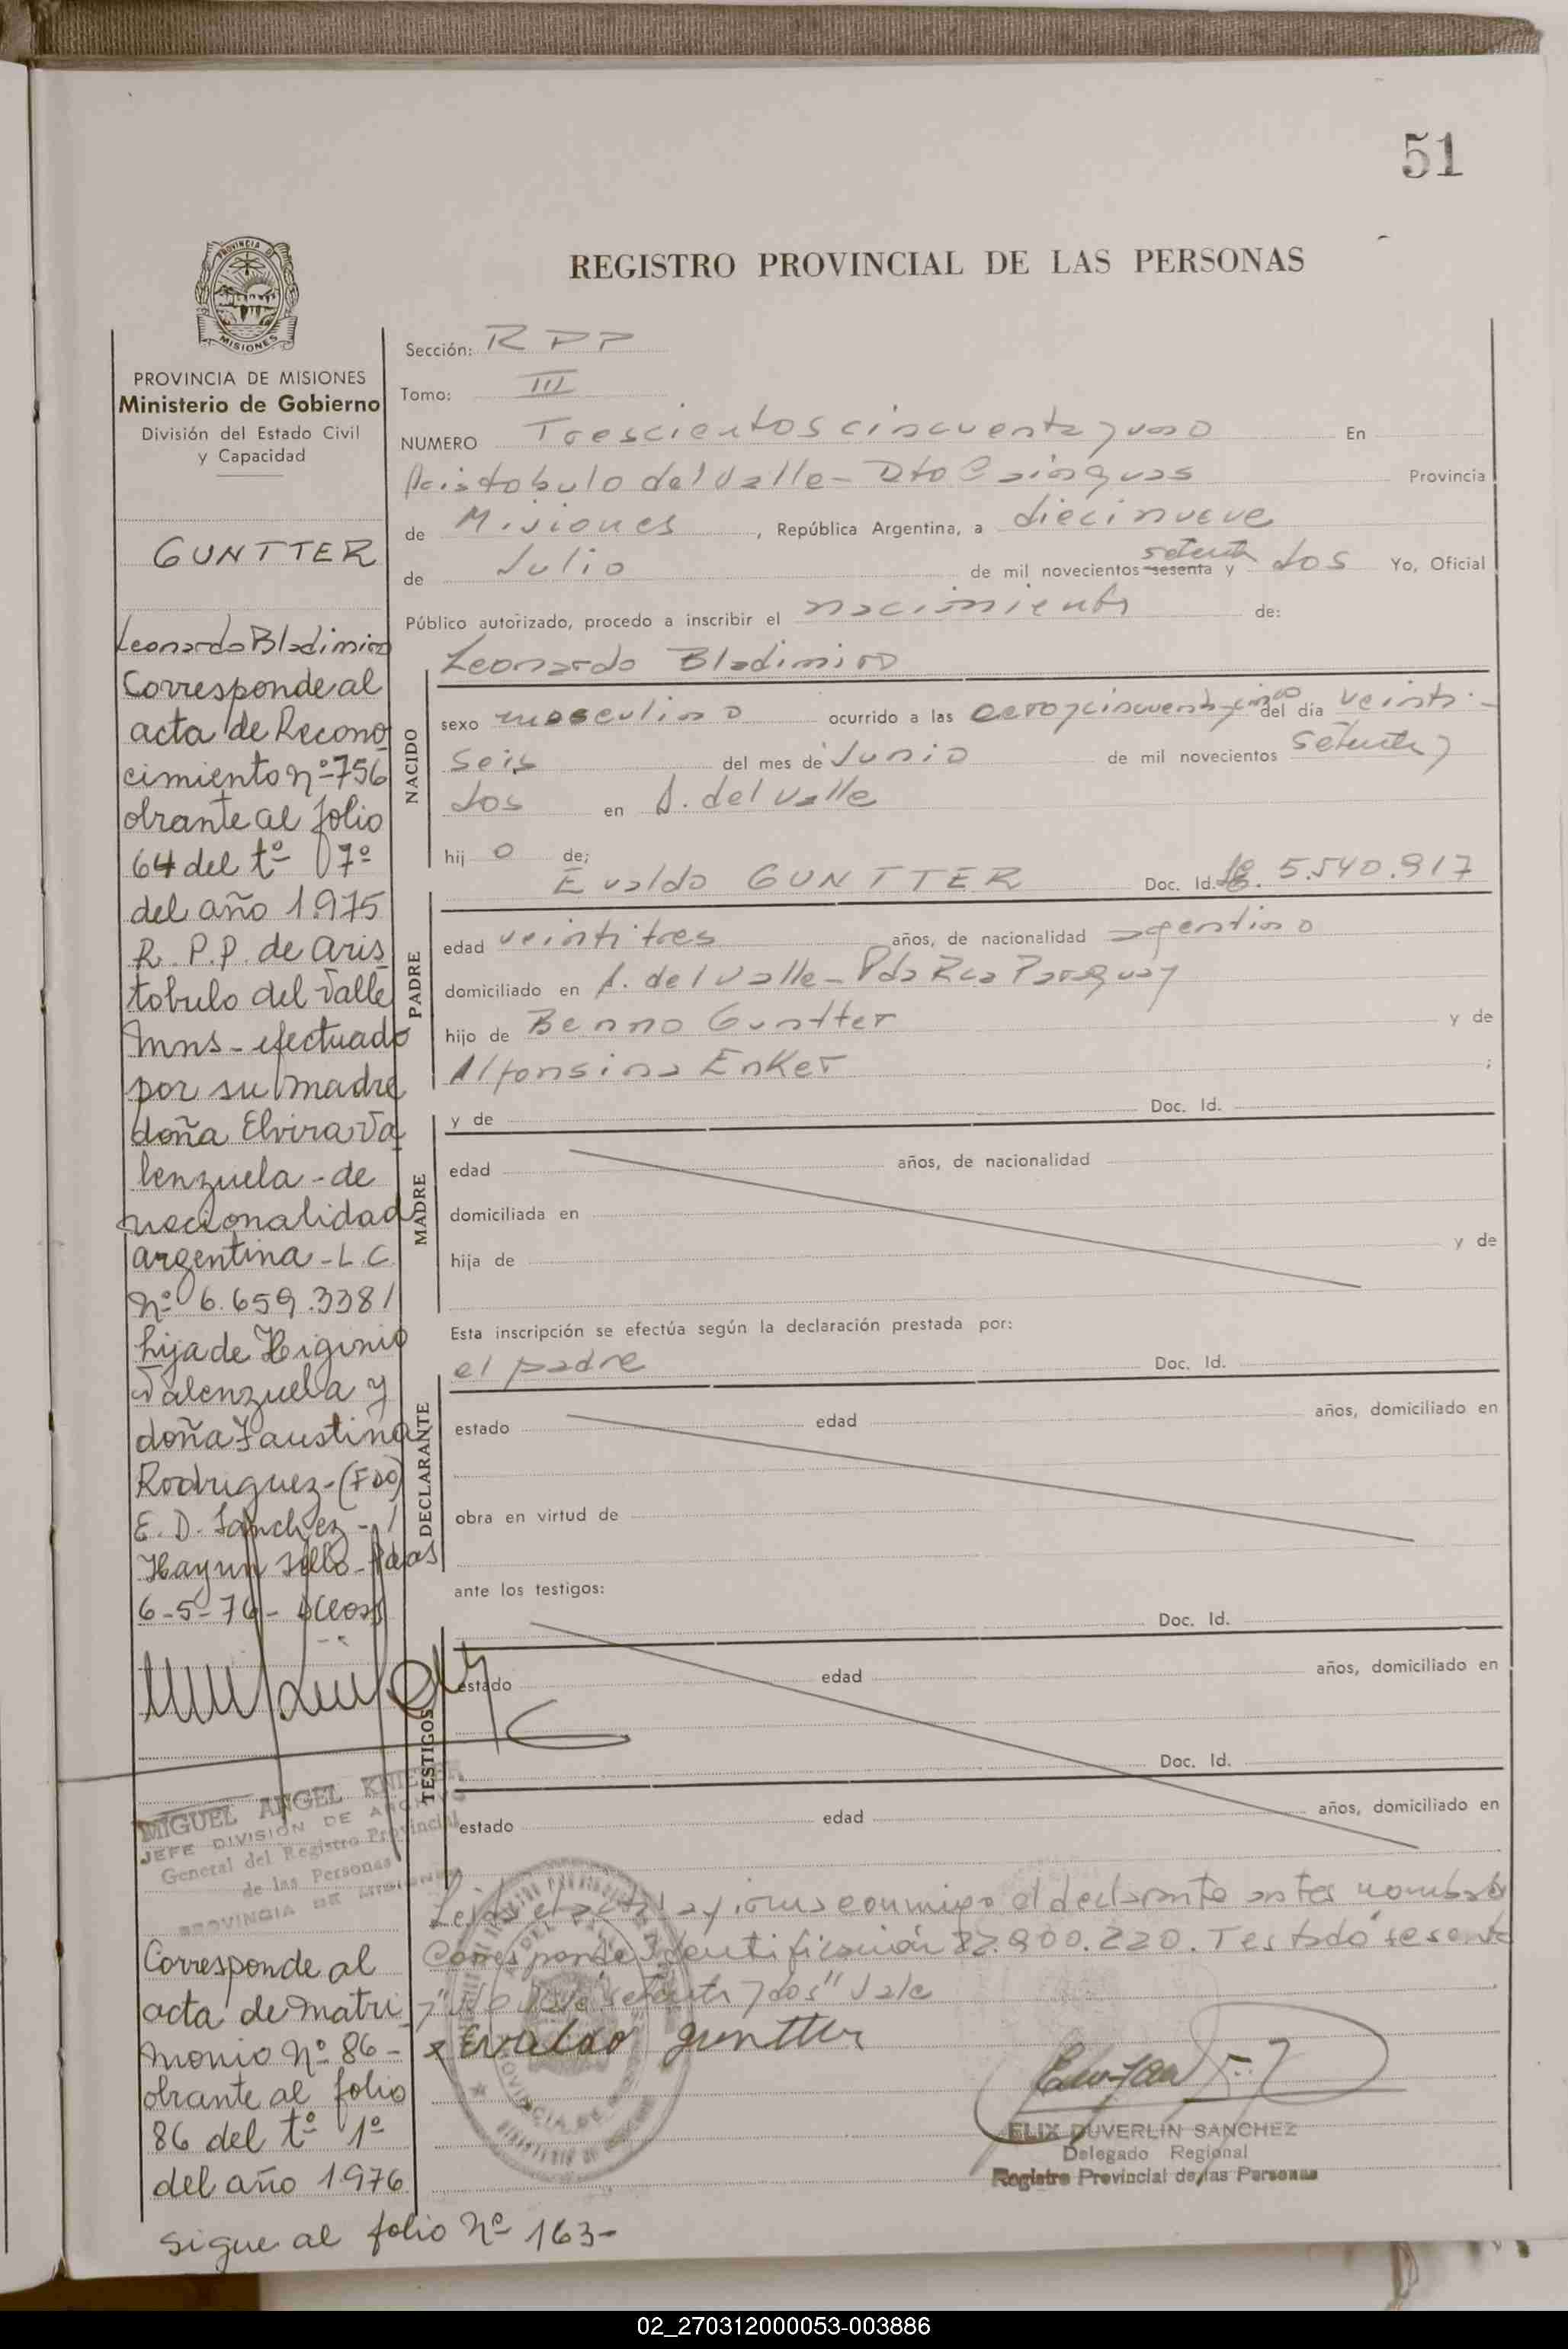 51
REGISTRO PROVINCIAL DE LAS PERSONAS
PROVINCIA DE
MISIONES
PROVINCIA DE MISIONES
Ministerio de Gobierno
División del Estado Civil
y Capacidad
GUNTTER
Leonardo Bladimiro
Corresponde al
acta de Recono
cimiento nº 756
obrante al folio
64 del tº 7º
del año 1.975
R. P.P. de Aris
tobulo del Valle
Mns - efectuado
por su madre
doña Elvira Va
lenzuela - de
nacionalidad
argentina - L.C.
Nº 6.659.338/
hija de Higinio
Valenzuela y
doña Faustina
Rodriguez - (FDO)
E. D. Sanchez - /
Hay un sello - Pdas
6-5-76 -
MIGUEL ANGEL
JEFE DIVISION DE ARCHIVO
General del Registro Provincial
de las Personas
PROVINCIA DE MISIONES
Corresponde al
acta de matri
monio Nº 86 -
obrante al folio
86 del tº 1º
del año 1976
sigue al folio Nº 163-
Sección: R P P
Tomo: III
NUMERO Trescientos cincuenta y uno En
Aristobulo del Valle - Dto Cainguas Provincia
de Misiones, República Argentina, a diecinueve
setenta
de Julio de mil novecientos sesenta y dos Yo, Oficial
Público autorizado, procedo a inscribir el nacimiento de:
Leonardo Bladimiro
NACIDO
sexo masculino ocurrido a las cero y cincuenta y cinco del día veinti-
seis del mes de Junio de mil novecientos setenta y
dos en A. del Valle
hij o de;
Evaldo GUNTTER Doc. Id. 5.540.917
PADRE
edad veintitres años, de nacionalidad argentino
domiciliado en A. del Valle - Pda Rca Paraguay
hijo de Benno Guntter y de
Alfonsina Enker ;
y de Doc. Id.
MADRE
edad años, de nacionalidad
domiciliada en
hija de y de
Esta inscripción se efectúa según la declaración prestada por:
el padre Doc. Id.
DECLARANTE
estado edad años, domiciliado en
obra en virtud de
ante los testigos:
Doc. Id.
TESTIGOS
estado edad años, domiciliado en
Doc. Id.
estado edad años, domiciliado en
Leida el acta la firma conmigo el declarante antes nombrado
Corresponde Identificación 22.900.220. Testado "sesenta
y" No vale "setenta y dos" Vale
x Evaldo Guntter
ELIX DUVERLIN SANCHEZ
Delegado Regional
Registro Provincial de las Personas
02_270312000053-003886